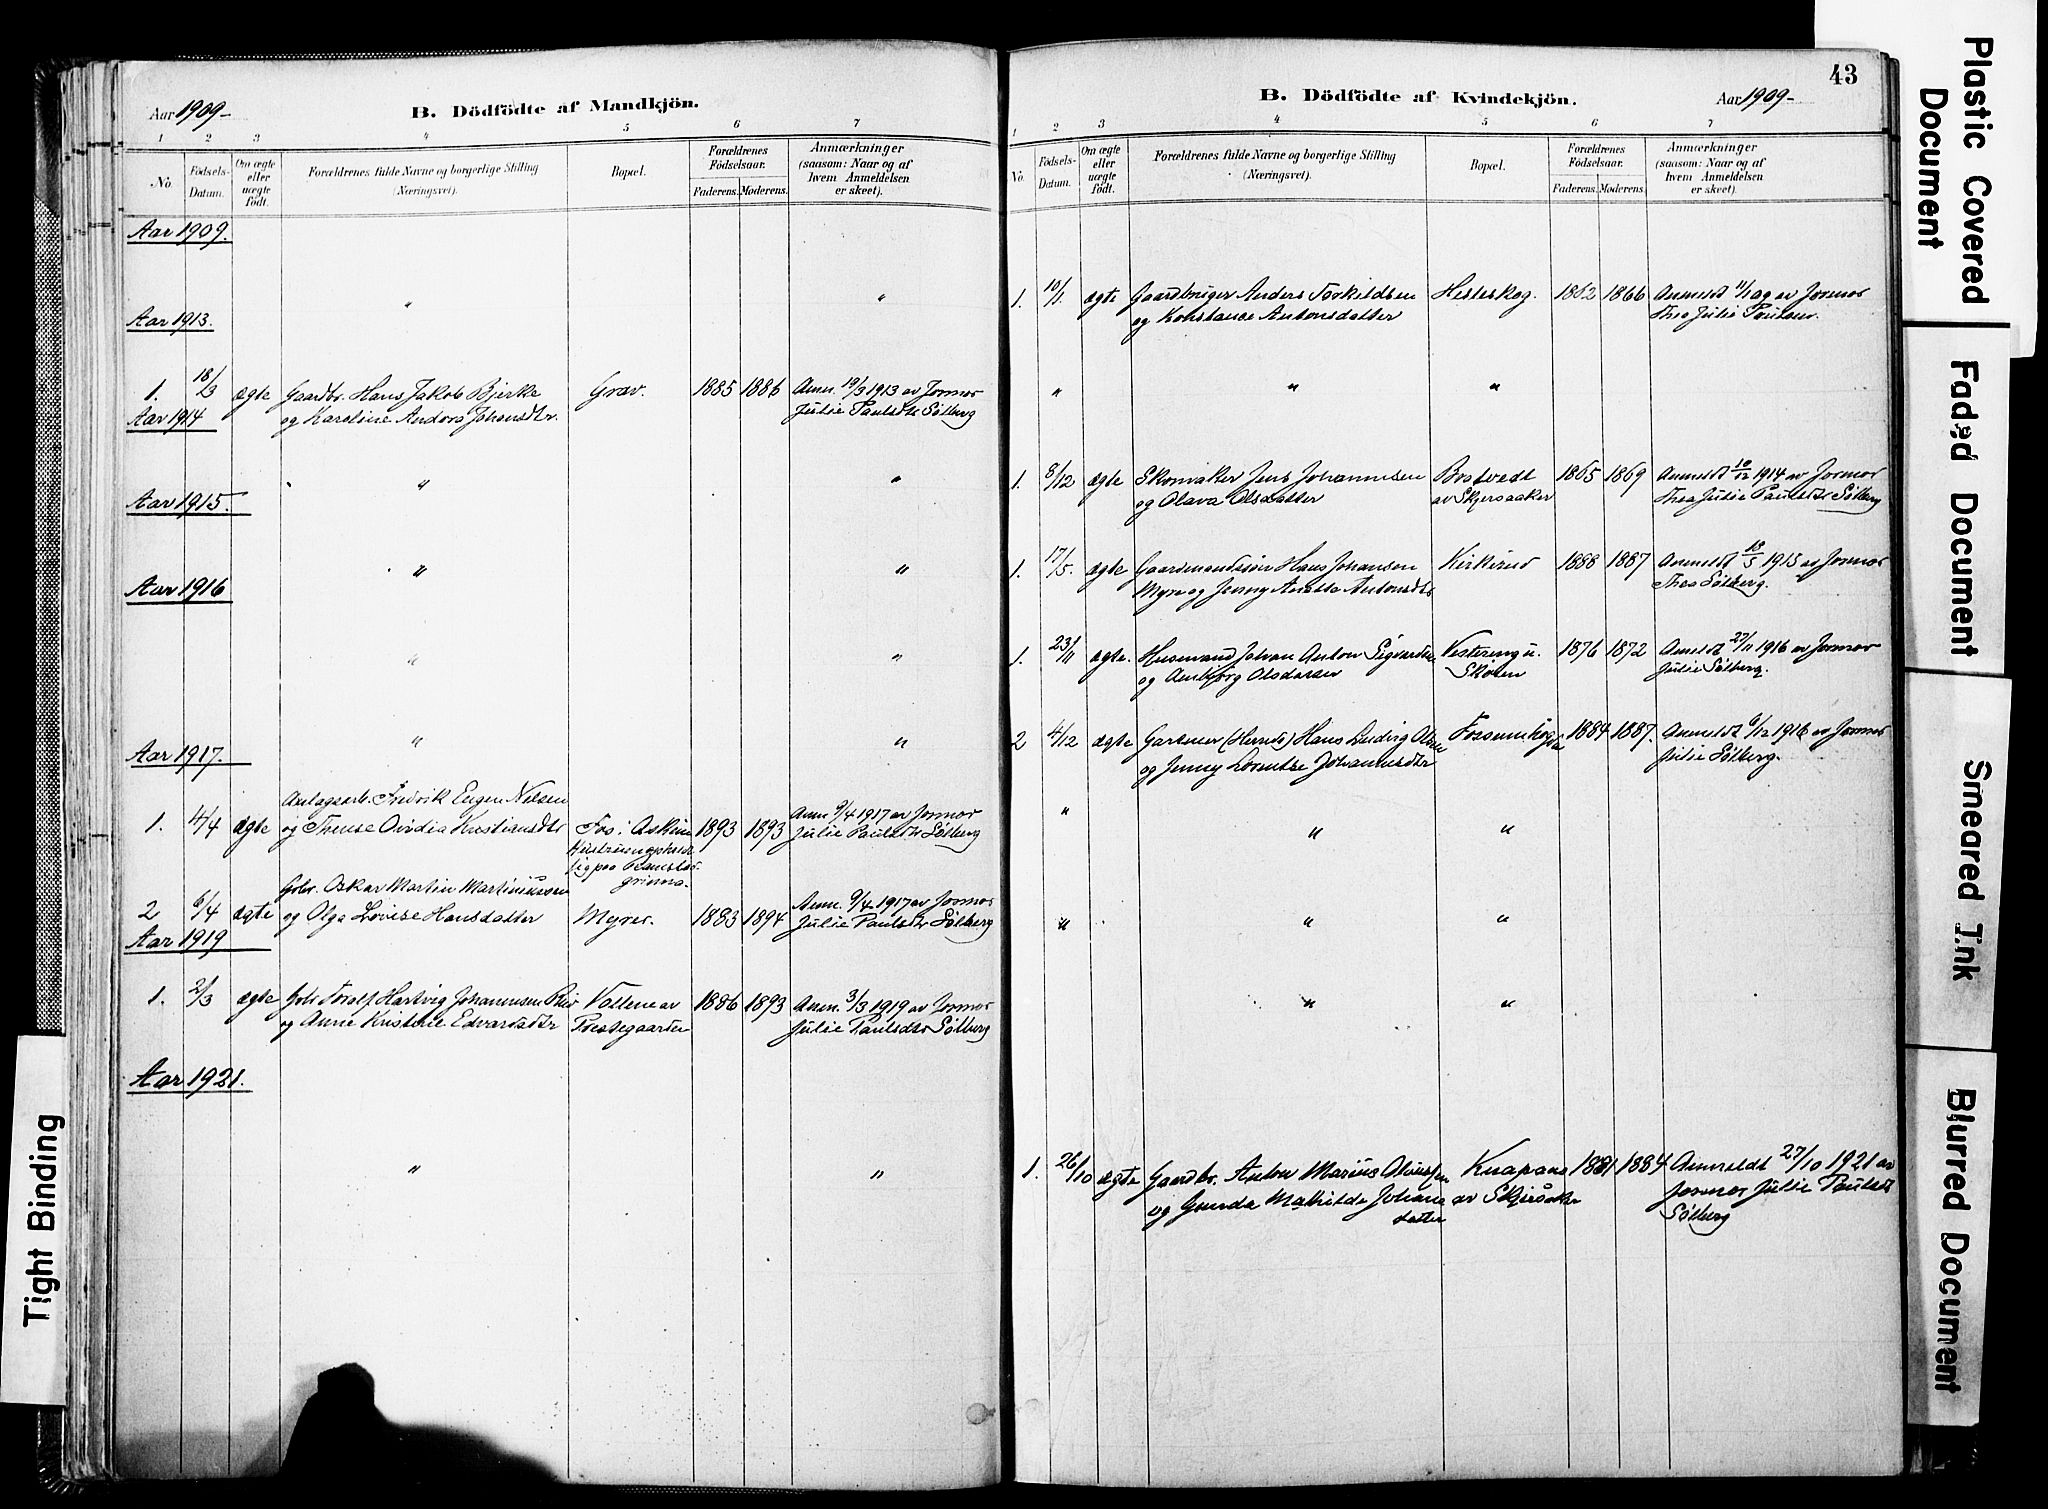 Aar 1909-
B. Dödfödte af Mandkjön.
1 2 3 4 5 6 7
No.
Födsels-Datum.
Om ægte eller uægte födt.
Forældrenes fulde Navne og borgerlige Stilling
(Næringsvei).
Bopæl.
Forældrenes Födselsaar.
Faderens. Moderens.
Anmærkninger
(saasom: Naar og af
hvem Anmeldelsen
er skeet).
Aar 1909.
" "
Aar 1913.
1. 18/3 ægte Gaardbr. Hans Jakob Bjerke Grav. 1885 1886 Anm. 19/3 1913 av Jormor
og Karoline Andora Johansdtr. Julie Paulsdtr Sölberg
Aar 1914
" "
Aar 1915.
" "
Aar 1916
" "
" "
Aar 1917.
Anlagsarb. Fredrik Eugen Nilsen
1. 4/4 ægte og Therese Ovidia Kristiansdtr Fos i Askim 1893 1893 Anm 9/4 1917 av Jormor
Julie Paulsdtr Sölberg
Gbr. Oskar Martin Martiniussen
2 6/4 ægte og Olga Lovise Hansdatter Myrer. 1883 1894 Anm. 9/4 1917 av Jormor
Julie Paulsdtr Sölberg
Aar 1919
1. 2/3 ægte Gbr Toralf Hartvig Johannesen Vollene av 1886 1893 Anm. 3/3 1919 av Jormor
og Anne Kristine Edvardsdtr Prestegaarden Julie Paulsdtr Sölberg
Aar 1921.
" "
43
B. Dödfödte af Kvindekjön.
Aar 1909-
1 2 3 4 5 6 7
No.
Födsels-Datum.
Om ægte eller uægte födt.
Forældrenes fulde Navne og borgerlige Stilling
(Næringsvei).
Bopæl.
Forældrenes Födselsaar.
Faderens. Moderens.
Anmærkninger
(saasom: Naar og af
hvem Anmeldelsen
er skeet).
1. 10/1. ægte Gaardbruger Anders Torkildsen Hesteskog. 1862 1866 Anmeldt 11/1 09 av Jormor
og Konstanse Antonsdatter Thea Julie Paulsen.
" " "
1. 8/12 ægte Skomaker Jens Johannesen Brotvedt 1865 1869 Anmeldt 10/12 1914 av Jormor
og Olava Olsdatter av Skjersaaker Thea Julie Paulsdtr Sölberg
1. 17/5. ægte Gaardmandssön Hans Johansen Kirkerud 1888 1887 Anmeldt 18/5 1915 av Jormor
Myre og Jenny Anette Antonsdtr Thea Sölberg.
1. 23/11 ægte. Husmand Johan Anton Sigvardsen Vestereng u. 1876 1872 Anmeldt 27/11 1916 av Jormor
og Olsdatter Skolen Julie Sölberg.
2 4/12 ægte Gartner Hans Ludvig Olsen 1884 1887. Anmeldt 6/12 1916 av Jormor
og Jenny Lorentse Johannesdtr Julie Sölberg.
" " "
" " "
" "
1. 26/10 ægte Gaardbr. Anton Marius Knapaas 1881 1884 Anmeldt 27/10 1921 av
og Gunda Mathilde Johans av Skjersaker Jormor Julie Paulsdtr
datter Sölberg
Plastic Covered Document
Faded Document
Smeared Ink
Blurred Document
Tight Binding